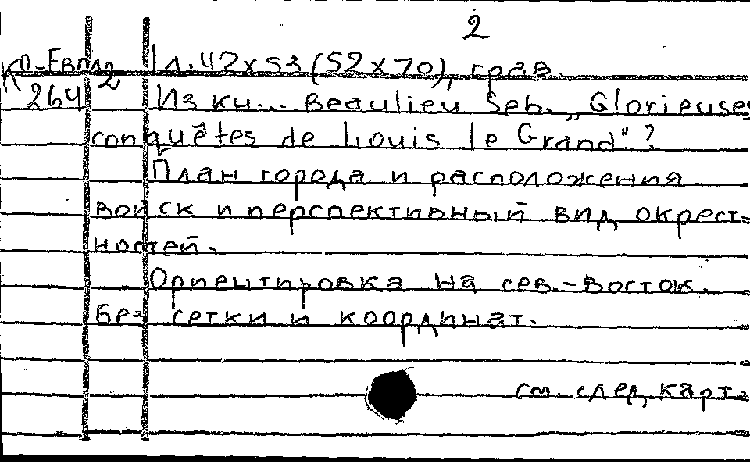 2
К 0-Евпл 1 л. 42х53 (52х70), грав.
2
264 Из кн.: Beaulieu Seb. „Glorieuses
conquêtes de Louis le Grand"?
План города и расположения
войск и перспективный вид окрест-
ностей.
Ориентировка на сев.-восток.
Без сетки и координат.
см. след. карт.